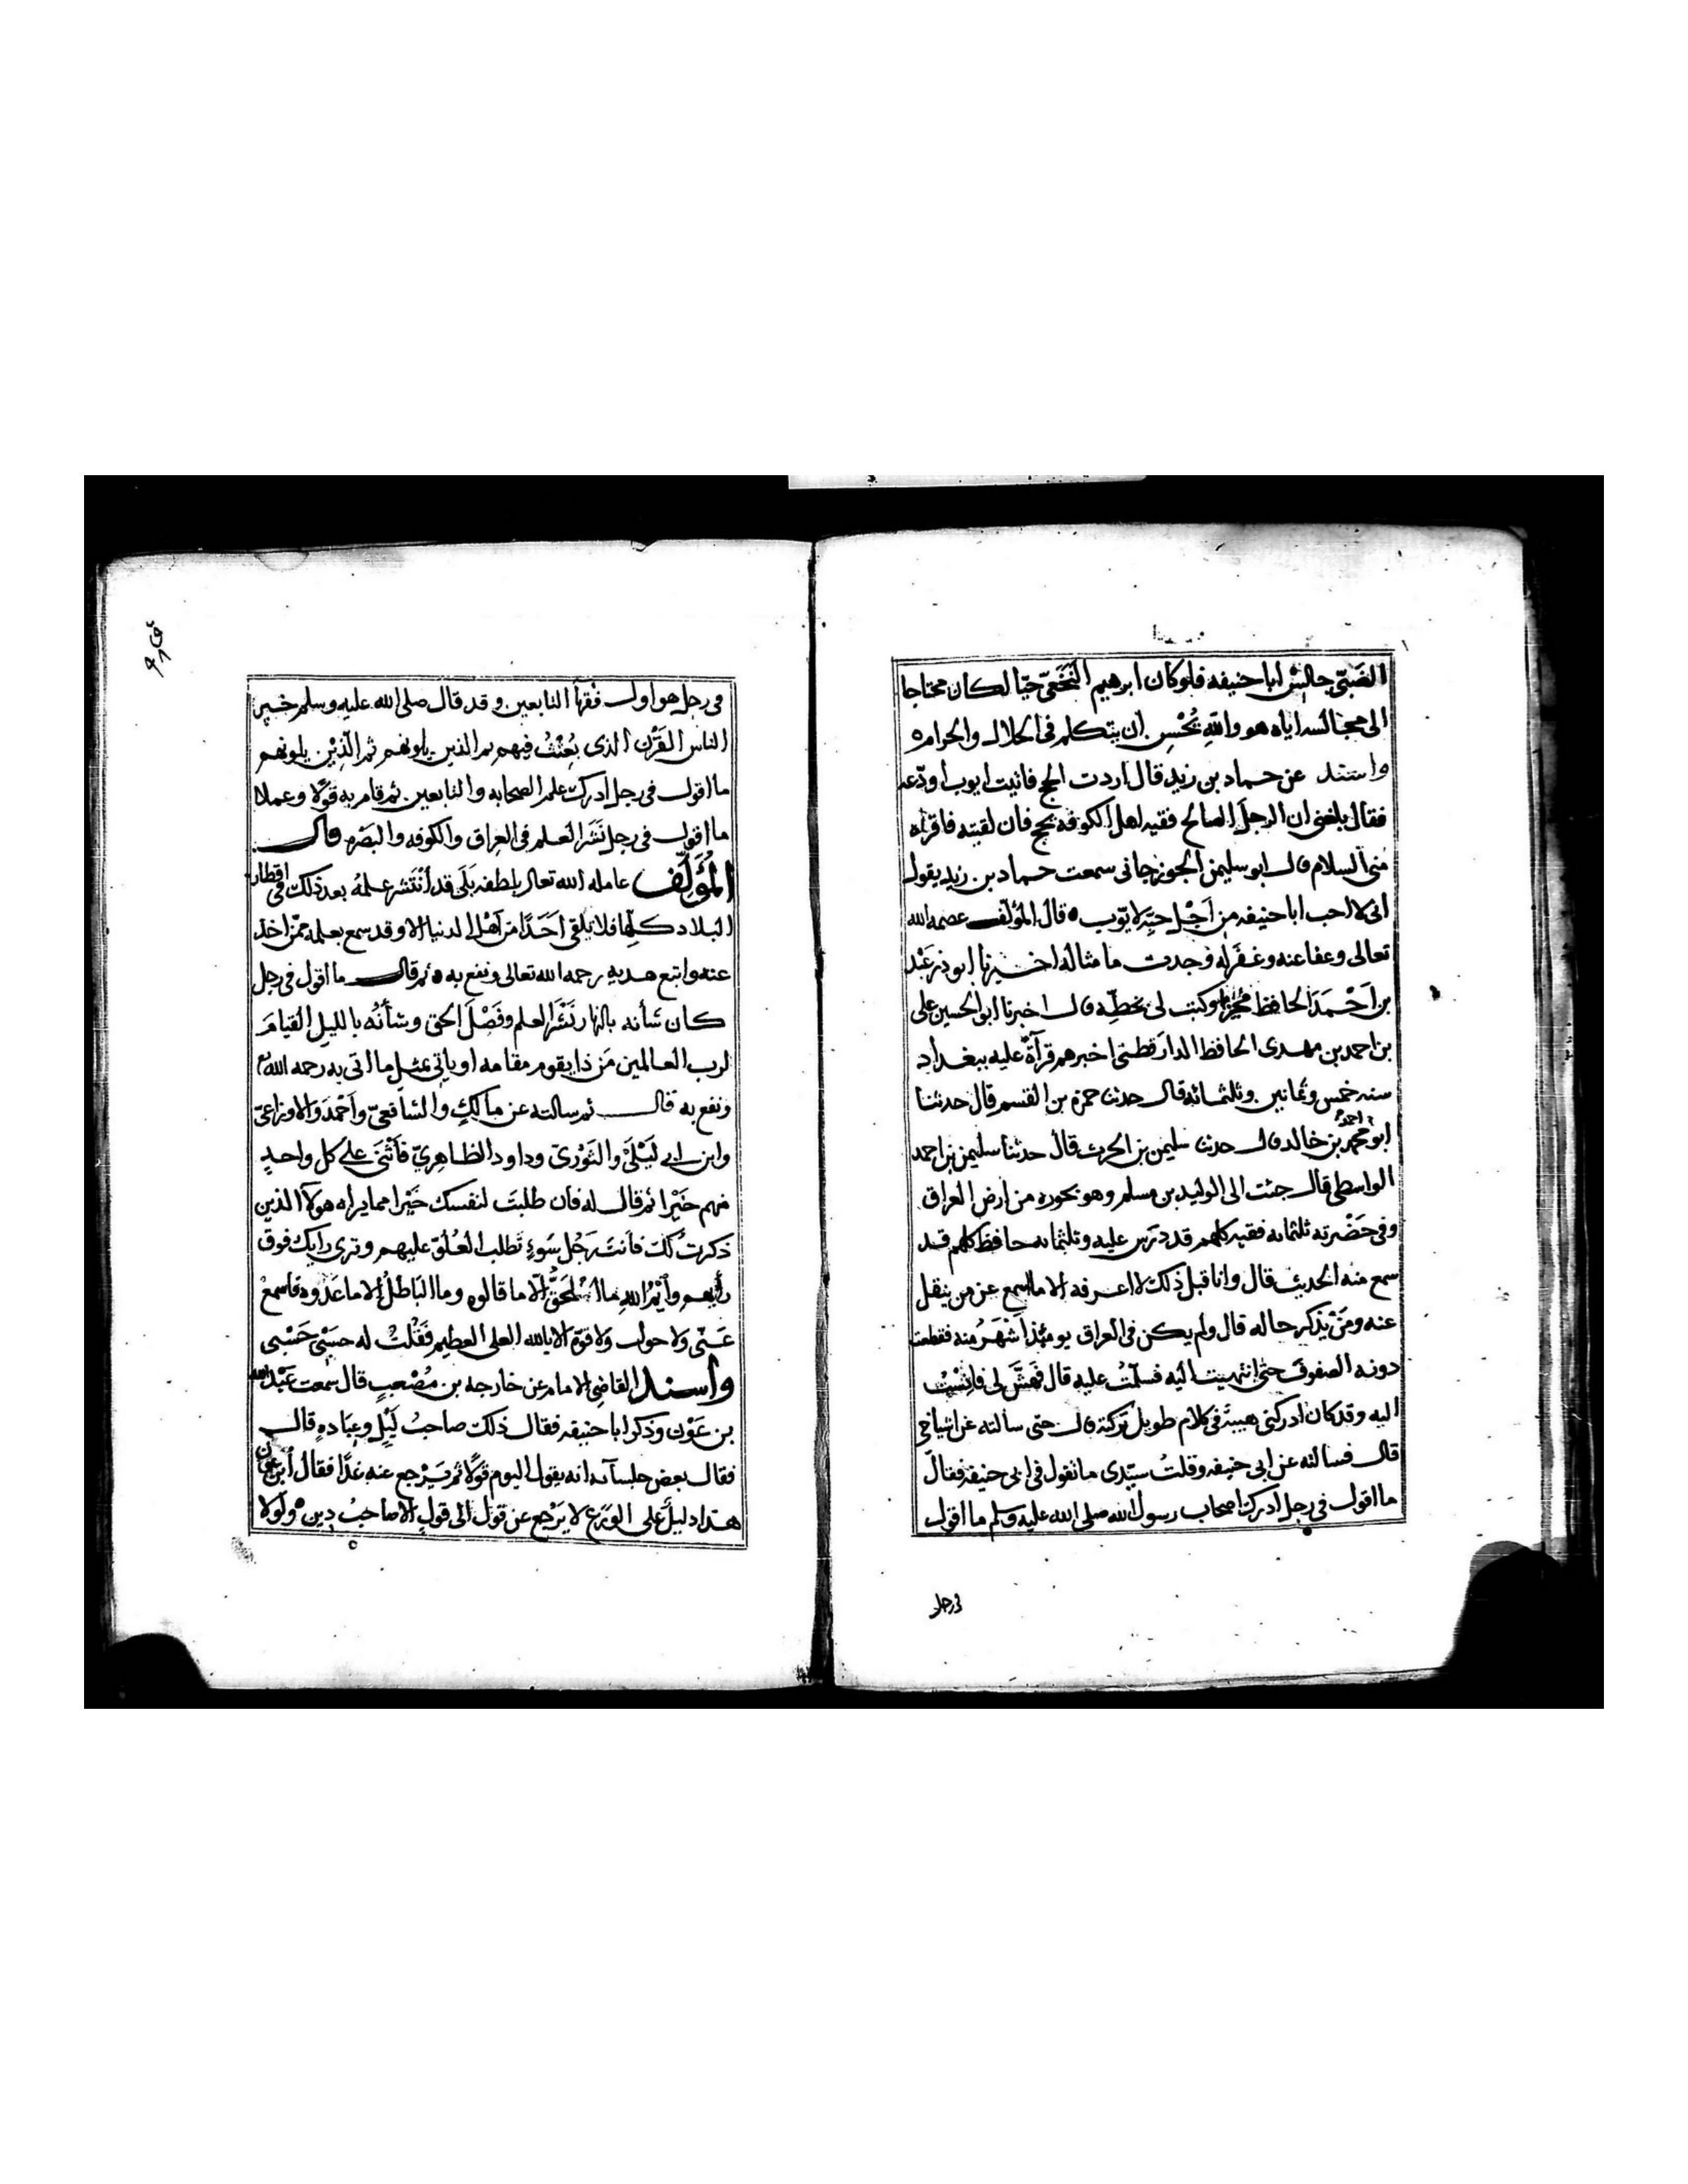 الضَبّيّ جالِسْ ابا حنيفه فلوكان ابرهيم النَخَعيّ حيّا لكان محتاجا
الى مجالسه اياه هو والله يُحْسِن ان يتكلم فى الحلال والحرام ه
واسند عن حماد بن زيد قال اردت الحج فاتيت ايوب اودّعه
فقال بلغنى ان الرجل الصالح فقيه اهل الكوفه يحج فان لقيته فاقراه
منى السلام قال ابو سليمن الجوزجانى سمعت حماد بن زيد يقول
انى لاحب ابا حنيفه من اَجْل حبّه لايّوب ه قال المؤلف عصمه الله
تعالى وعفا عنه وغفر له وجدت ما مثاله اخبرنا ابو ذر عَبْد
بن اَحْمَد الحافظ وكتبت لى بخطِّه قال اخبرنا ابو الحسين على
بن احمد بن مهدى الحافظ الدارقطنى اخبرهم قرآةً عليه ببغداد
سنه خمس وثمانين وثلثمائه قال حدثنا حمزه بن القسم قال حدثنا
ابو محمد بن خالد قال حدثنا سليمن بن الحرث قال حدثنا سليمن بن احمد
الواسطى قال جئت الى الوليد بن مسلم وهو بحوره من ارض العراق
وفى حَضْرته ثلثمائه فقيه كلهم قد درَس عليه وثلثمائه حافظ كلهم قد
سمع منه الحديث قال وانا قبل ذلك لا اعرفه الا ما اسمع عن من ينقل
عنه ومَنْ يَذكر حاله قال ولم يكن فى العراق يومئذ اَشْهَرُ منه فقطعت
دونه الصفوف حتى انتهيت اليه فسلّمْتُ عليه قال فهَشَّ لى فانِسْتُ
اليه وقد كان ادركنى هيبةً فى كلام طويل تركته قال حتى سالته عن اشياخى
قال فسالته عن ابى حنيفه وقلتُ سيّدى ما تقول فى ابى حنيفه فقال
ما اقول فى رجل ادرك اصحاب رسول الله صلى الله عليه وسلم ما اقول
فى رجل
فى رجل هو اول فُقهآ التابعين وقد قال صلى الله عليه وسلم خير
الناس القَرْن الذى بُعِثْتُ فيهم ثم الذين يلونهم ثم الّذِيْن يلونهم
ما اقول فى رجل ادرك علم الصحابه والتابعين ثم قام به قَوْلًا وعملا
ما اقول فى رجل نَشَر العلم فى العراق والكوفه والبَصْره قال
المُؤَلِّف عامله الله تعالى بلطفه بَلَى قد اَنْتَشر عِلمُهُ بعد ذلك فى اقطار
البلاد كلّها فلا تلقى اَحَدًا مِن اَهْل الدنيا الا وقد سمع بعلمه ممّن اخذ
عنه واتبع هديه رحمه الله تعالى ونفع به ه ثم قال ما اقول فى رجل
كان شأنه بالنهار نَشْرَ العلم وفَصْلَ الحق وشأنُه بالليل القيامَ
لرب العالمين مَن ذا يقوم مقامه او ياتى بمثل ما اتى به رحمه الله
ونفع به قال ثم سالته عن مالكٍ والشافعىّ واَحْمَد والاوزاعىّ
وابن ابى لَيْلَىْ والثَوْرىّ وداود الظاهرىّ فَاَثْنَى على كل واحدٍ
منهم خَيْرا ثم قال له فان طلبتَ لنفسك خَيْرا مما يراه هولآ الذين
ذكرتُ لك فاَنتَ رَجُل سَوءٍ تَطلب العُلُوّ عليهم وترى رايك فوق
رأيهم وأيْمُ اللهِ ما الْحَقُّ الّا ما قالوه وما البَاطلُ الا ما عَدَوه فاسمعْ
عَنّى ولا حول ولا قوّة الا بالله العلى العظيم فَقُلْتُ له حسبْى حَسْبى
واسند القاضى الامام عن خارجه بن مُصْعَبٍ قال سمعت عَبْد الله
بن عَوْن وذكر ابا حنيفه فقال ذلك صاحبُ لَيْلٍ وعِبَاده قال
فقال بعض جلسآئه انه يقول اليوم قَوْلًا ثم يَرْجع عنه غدًا فقال اُبن عَون
هذا دليلٌ على الوَرَع لا يَرْجع عن قول الى قولٍ الا صاحبُ دِين ه ولولا